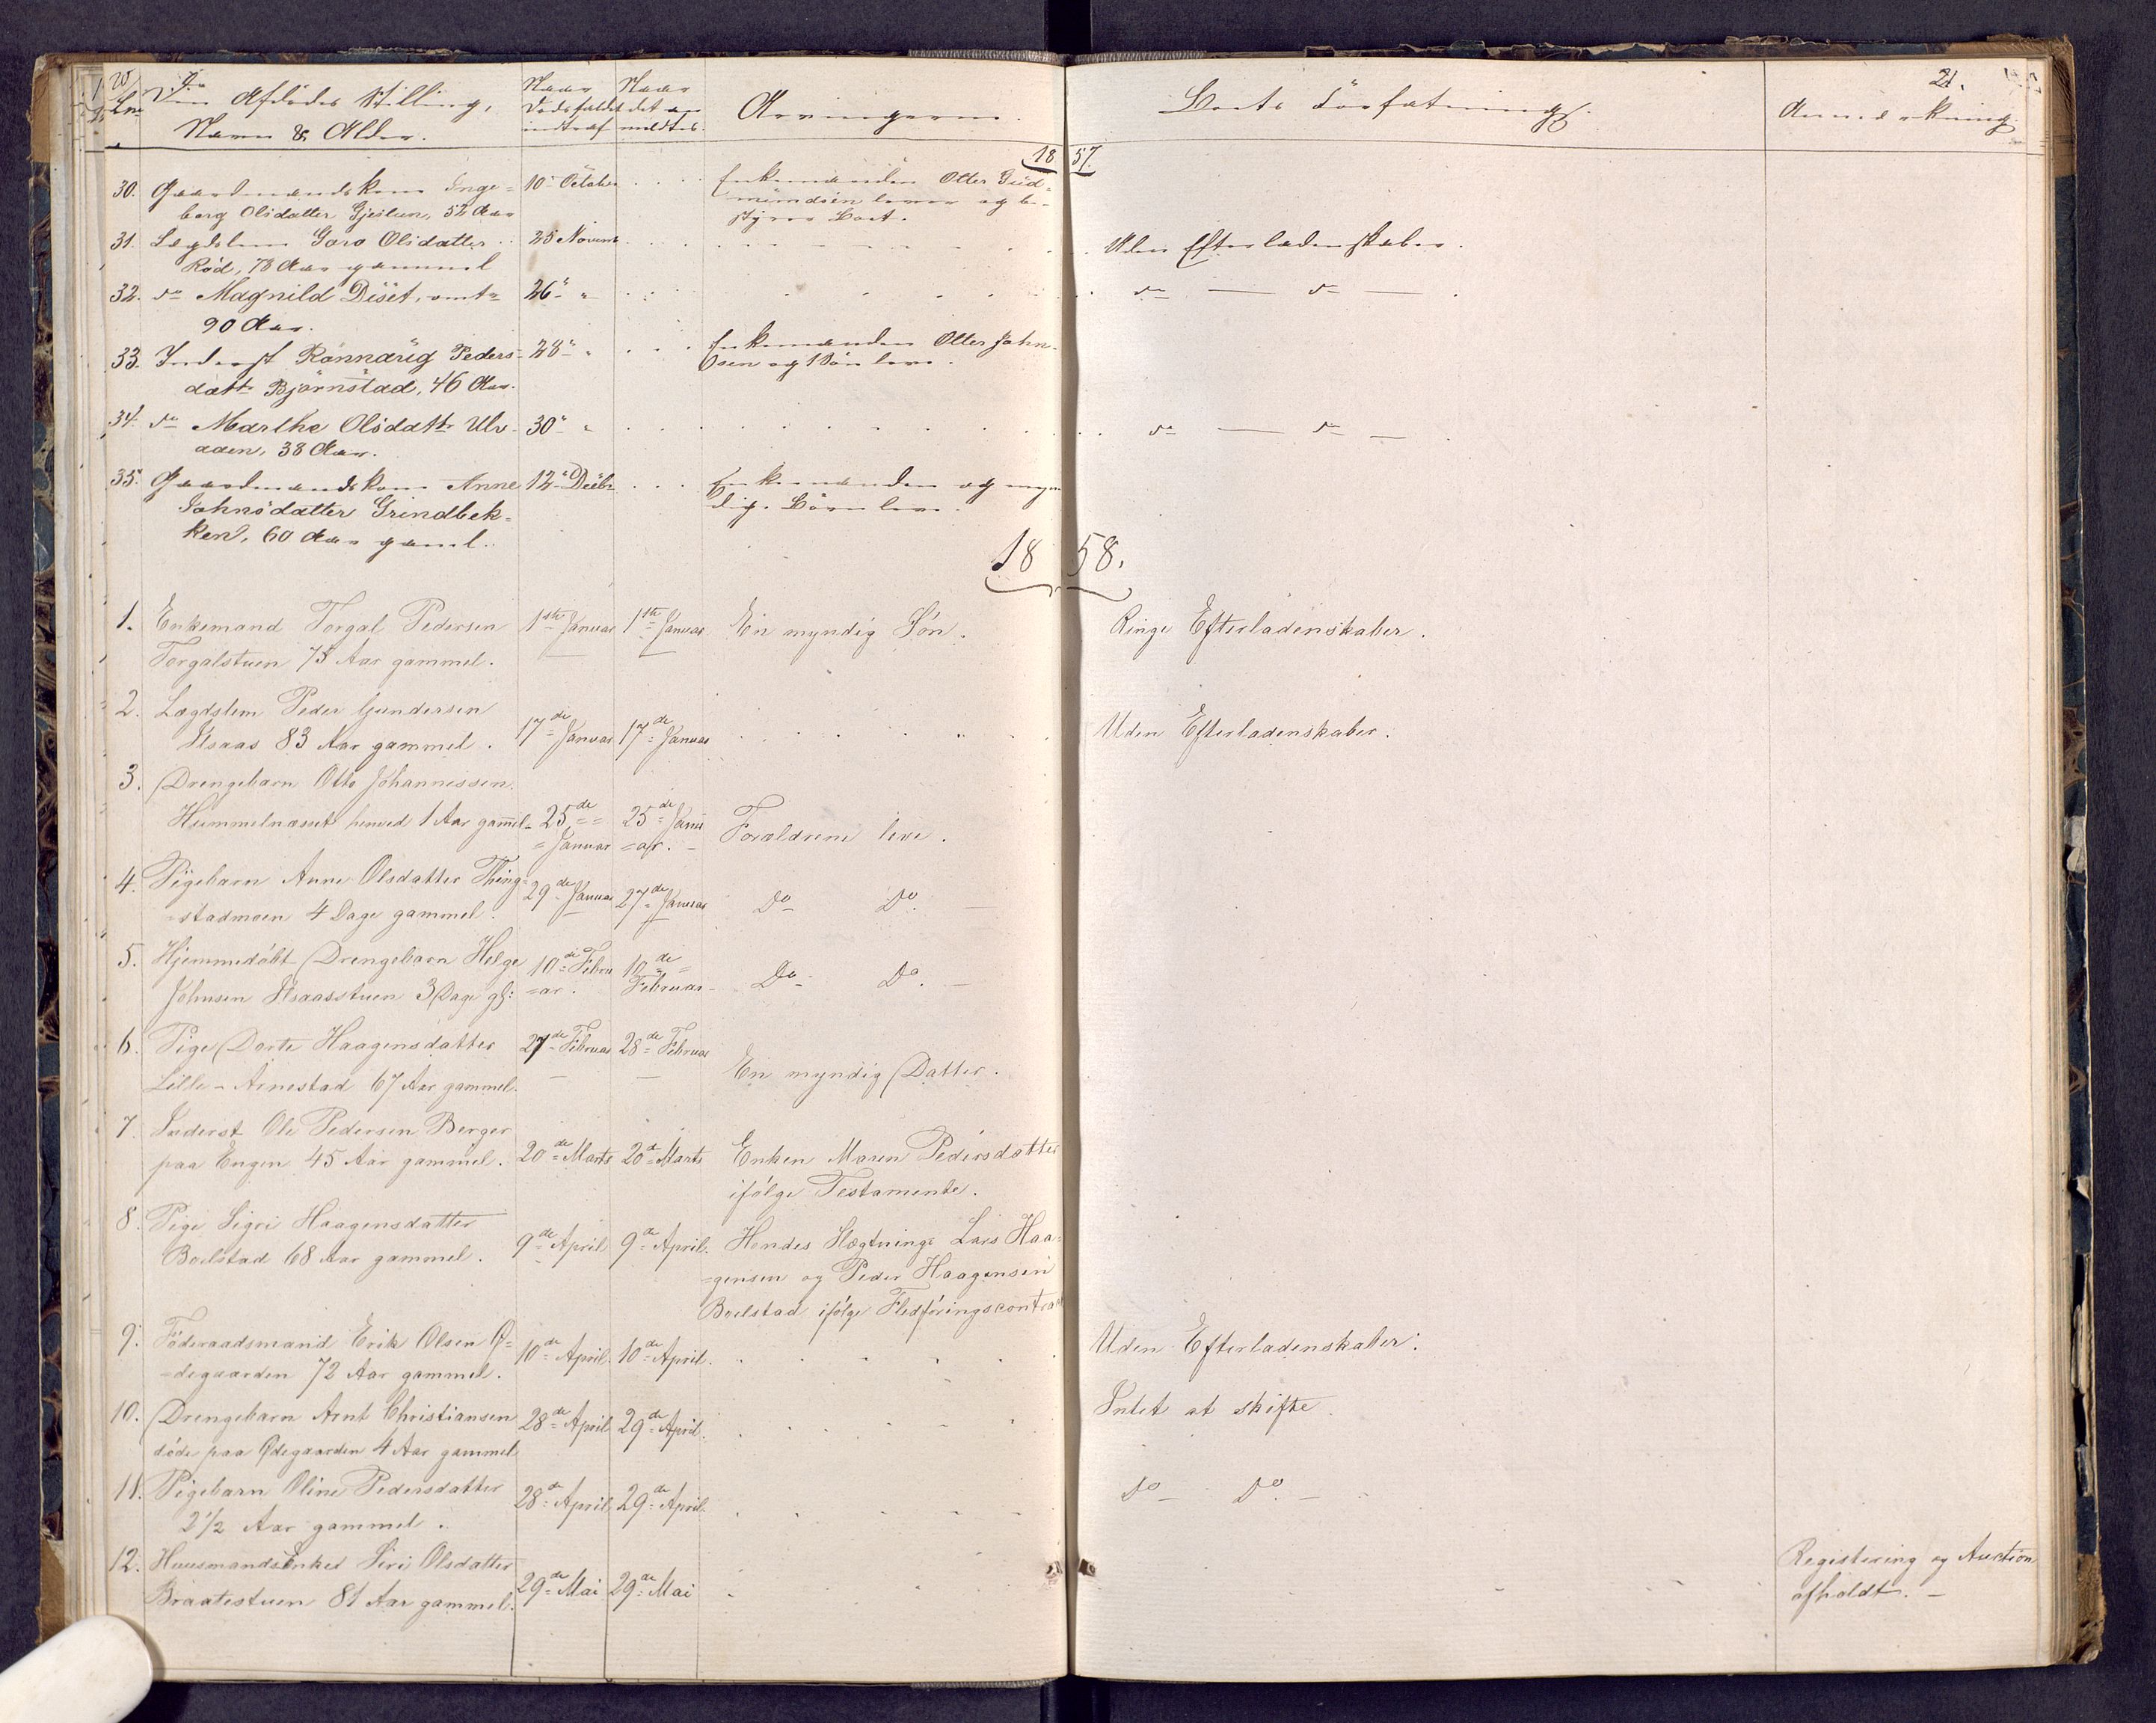 20
Lne
Den Afdødes Stilling,
Navn & Alder.
Naar Dødsfaldet indtraf
Naar det anmeldtes.
Arvingerne.
Boets Forfatning.
21.
Anmærkning.
1857.
30. Gaardmandskone Inge=
borg Olsdatter Gjeslien, 52 Aar
10de October
Enkemanden Otter Gud=
mundsen lever og be=
styrer Boet.
31. Lægdslem Goro Olsdatter
Rød, 78 Aar gammel
25 Novemb
Uden Efterladenskaber.
32. do Magnild Diset, omtr
90 Aar.
26 "
do — do —
33. Inderst Rønnaug Peders=
datt Bjørnstad, 46 Aar.
28 "
Enkemanden Otter John=
sen og 1 Søn lever.
34. do Marthe Olsdattr Ulv=
aaen, 38 Aar.
30 "
do — do —
35. Gaardmandskone Anne
Johnsdatter Grindbek=
ken, 60 Aar gaml.
12 Decbr
Enkemanden og myn
dige Børn lever.
1858.
1. Enkemand Torgal Pedersen
Torgalstuen 75 Aar gammel.
1ste Januar
1ste Januar
En myndig Søn.
Ringe Efterladenskaber.
2. Lægdslem Peder Gundersen
Ilsaas 83 Aar gammel.
17de Januar
17de Januar
Uden Efterladenskaber.
3. Drengebarn Otto Johannessen
Hummelnæset henved 1 Aar gammel
25de = Januar
25de Janu=ar.
Forældrene leve.
4. Pigebarn Anne Olsdatter Thing=
stadmoen 4 Dage gammel.
29de Januar
27de Januar
Do Do.
5. Hjemmedøbt Drengebarn Helge
Johnsen Ilsaasstuen 3 Dage gl:
10de Febru=ar.
10de Februar
Do Do.
6. Pige Dorte Haagensdatter
Lille-Arnestad 67 Aar gammel.
27de Februar
28de Februar
En myndig Datter.
7. Inderst Ole Pedersen Berger
paa Engen 45 Aar gammel.
20de Marts
20de Marts
Enken Maren Pedersdatter
ifølge Testamente.
8. Pige Sigri Haagensdatter
Boelstad 68 Aar gammel.
9de April
9de April.
Hendes Slægtninge Lars Haa=
=gensen og Peder Haagensen
Boelstad ifølge Fledføringscontrakt
9. Föderaadsmand Erik Olsen Ø=
=degaarden 72 Aar gammel.
10de April.
10de April.
Uden Efterladenskaber.
10. Drengebarn Arnt Christiansen
döde paa Ødegaarden 4 Aar gammel
28de April
29de April.
Intet at skifte
11. Pigebarn Oline Pedersdatter
2 1/2 Aar gammel.
28de April
29de April.
Do Do.
12. Huusmandsenke Siri Olsdatter
Braatestuen 81 Aar gammel.
29de Mai
29de Mai
Registering og Auction
afholdt.